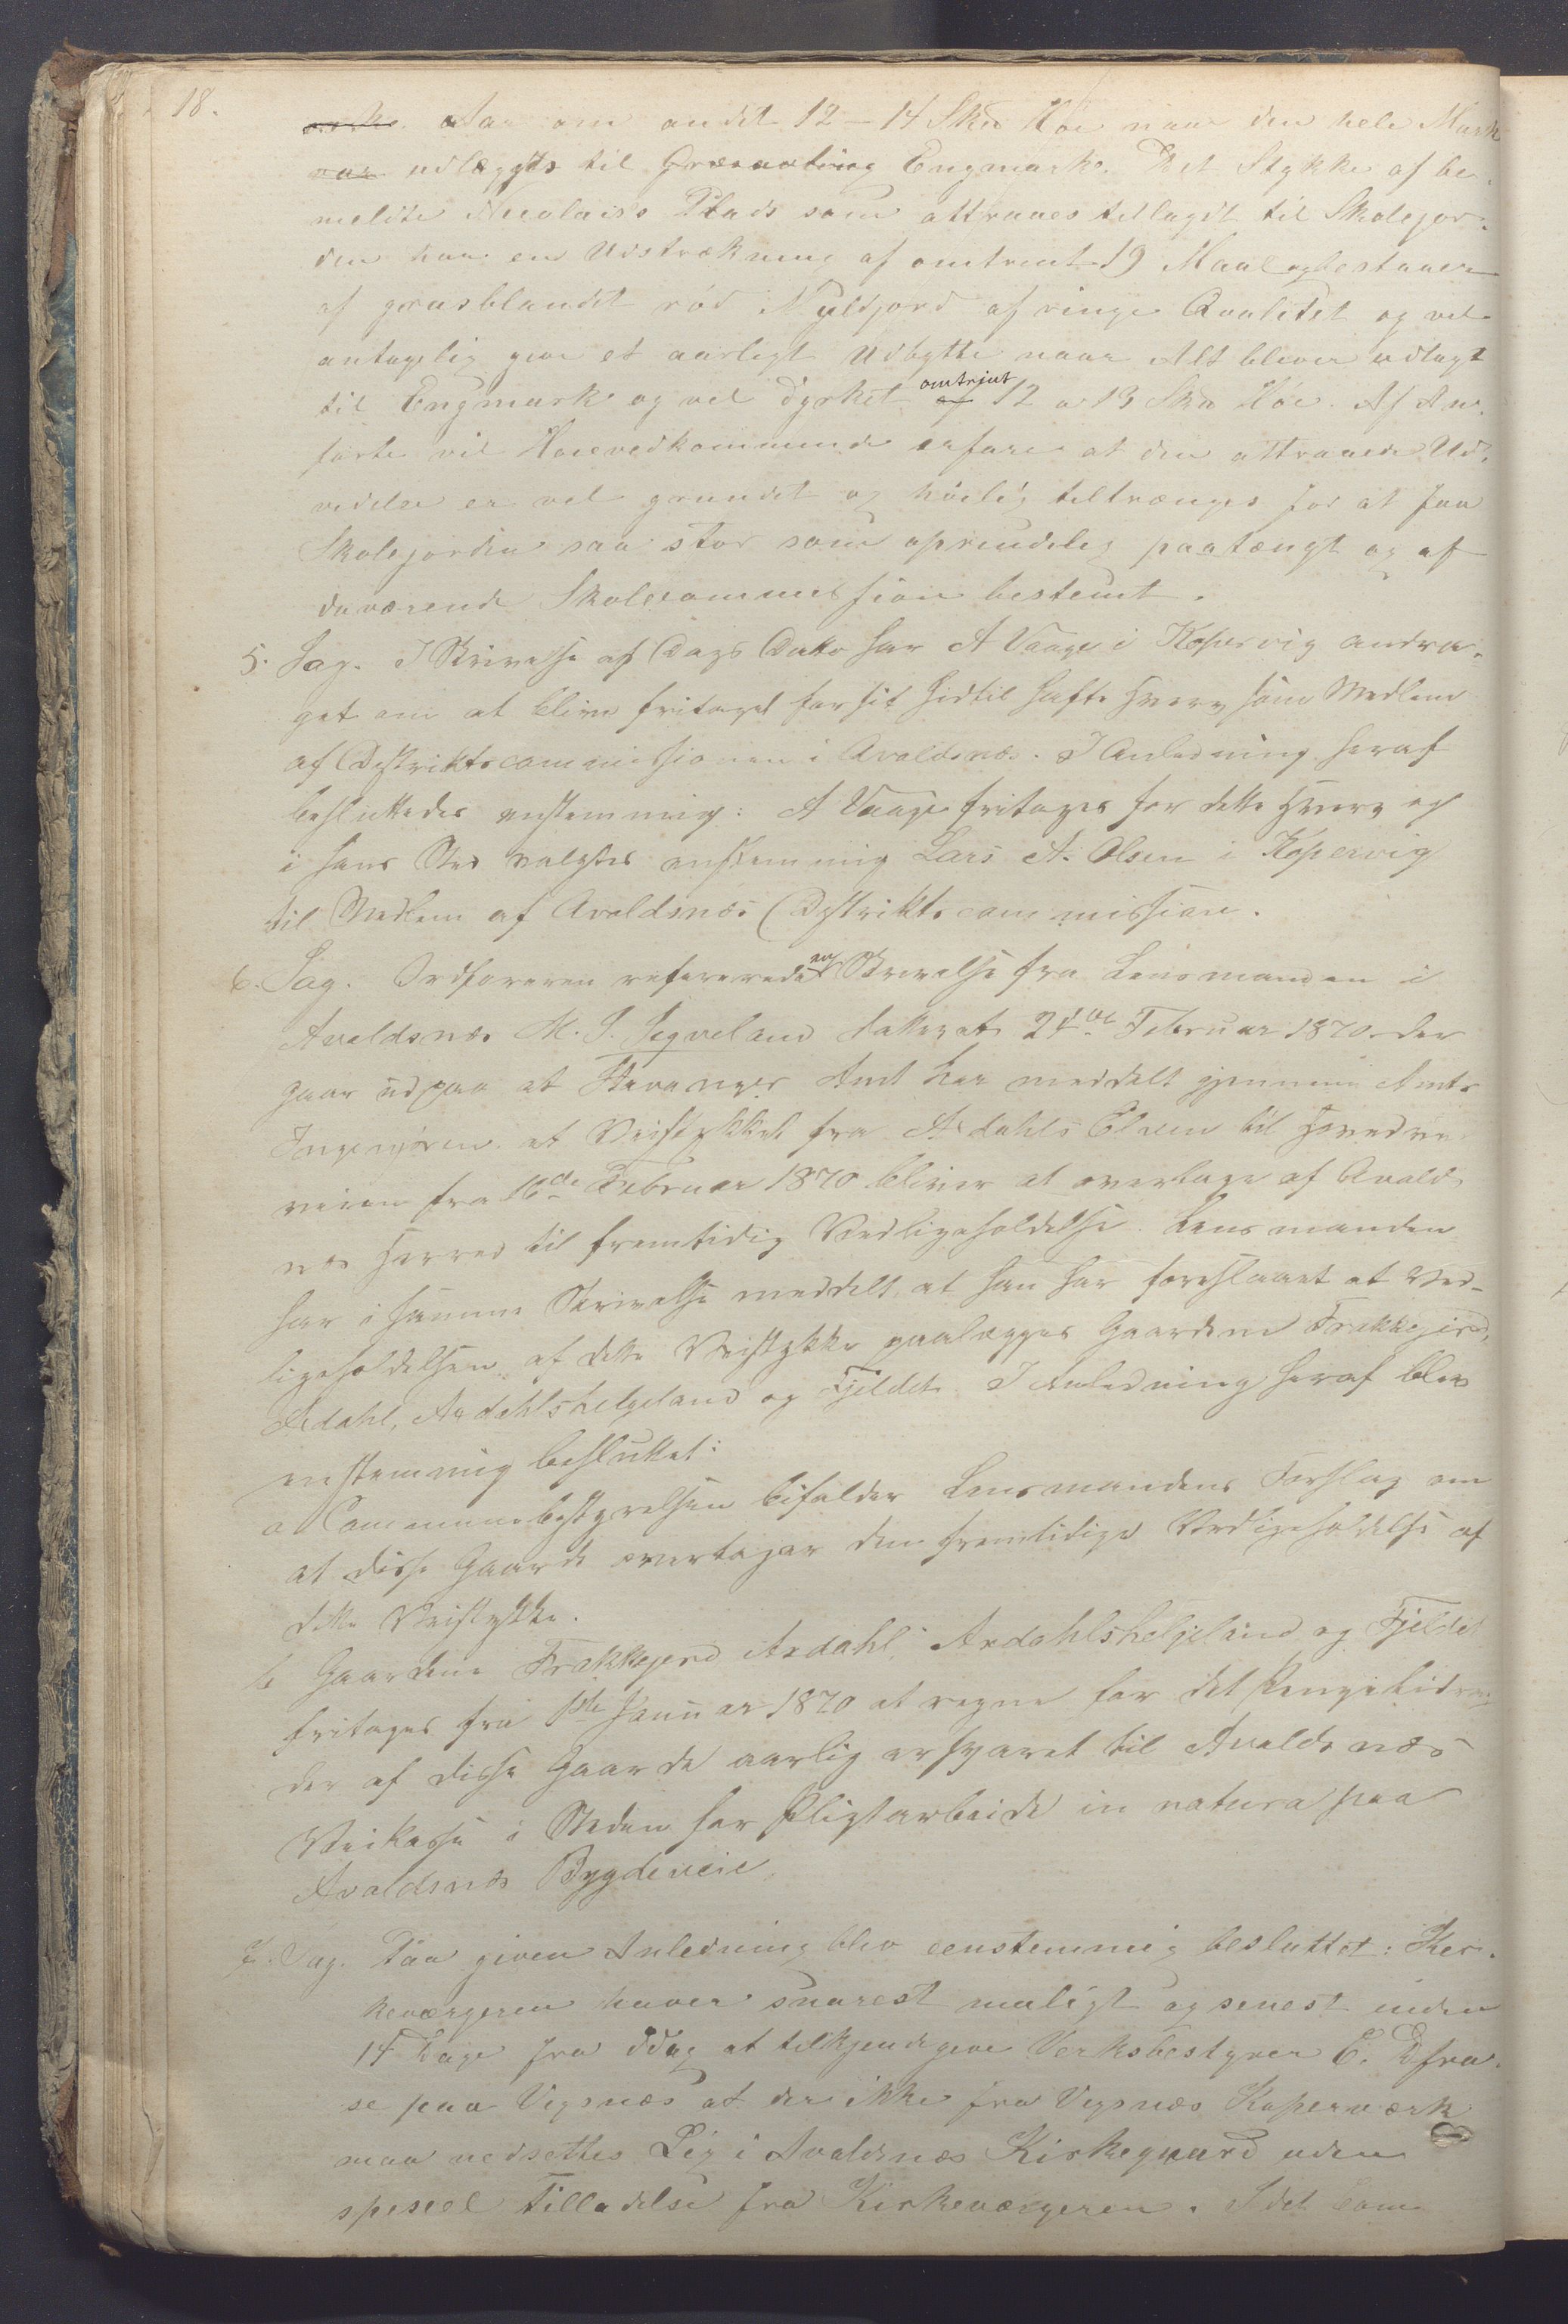 18.
Aar om andet 12 – 14 Sk℔ Høe naar den hele Mark
udlægges til Engmark. Det Stykke af be-
meldte Nicolaiss Plads som attraaes tillagt til Skolejor-
den har en Udstrækning af omtrent 19 Maal og bestaaer
af grusblandet rød Myldjord af ringe Qvalitet og vel
antagelig give et aarligt Udbytte naar Alt bliver udlagt
til Engmark og vel dyrket omtrent 12 a 13 Sk℔ Høe. Af An-
førte vil Herevedkommende erfare at den attraaede Ud-
videlse er vel grundet og høilig tiltrænges for at faa
Skolejorden saa stor som oprindelig paatænkt og af
daværende Skolecommission bestemt.
5. Sag. I Skrivelse af Dags Dato har A Vaage i Kopervig andra-
get om at blive fritaget for sit hidtil hafte Hverv som Medlem
af Distriktscommissionen i Avaldsnæs. I Anledning heraf
besluttedes enstemmig: A Vaage fritages for dette Hverv og
i hans Sted valgtes enstemmig Lars A. Olsen i Kopervig
til Medlem af Avaldsnæs Distriktscommission.
6. Sag. Ordføreren refererede en Skrivelse fra Lensmanden i
Avaldsnæs M. S. Seqveland dateret 24de Februar 1870 der
gaar ud paa at Stavanger Amt har meddelt gjennem Amts
Ingeniøren at Veistykket fra Aidahls Elven til Hoved
veien fra 16de Februar 1870 bliver at overtage af Avalds
næs Herred til fremtidig Vedligeholdelse. Lensmanden
har i samme Skrivelse meddelt at han har foreslaaet at Ved-
ligeholdelsen af dette Veistykke paalægges Gaardene Frakkagjerd,
Ardahl, Ardahlshelgeland og Fjeldet. I Anledning heraf blev
enstemmig besluttet:
a Communebestyrelsen bifalder Lensmandens Forslag om
at disse Gaarde overtager den fremtidige Vedligeholdelse af
dette Veistykke.
b Gaardene Frakkagjerd Ardahl, Ardahlshelgeland og Fjeldet
fritages fra 1ste Januar 1870 at regne for det Pengebidrag
der af disse Gaarde aarlig er svaret til Avaldsnæs
Veikasse i Steden for Pligtarbeide in natura paa
Avaldsnæs Bygdeveie.
7. Sag. Paa given Anledning blev eenstemmig besluttet: Kir-
keværgeren haver snarest muligt og senest inden
14 Dage fra idag at tilkjendegive Verksbestyrer E. Defra-
se paa Vigsnæs at der ikke fra Vigsnæs Koperværk
maa nedsettes Lig i Avaldsnæs Kirkegaard uden
speseel Tilladelse fra Kirkeværgeren. I det